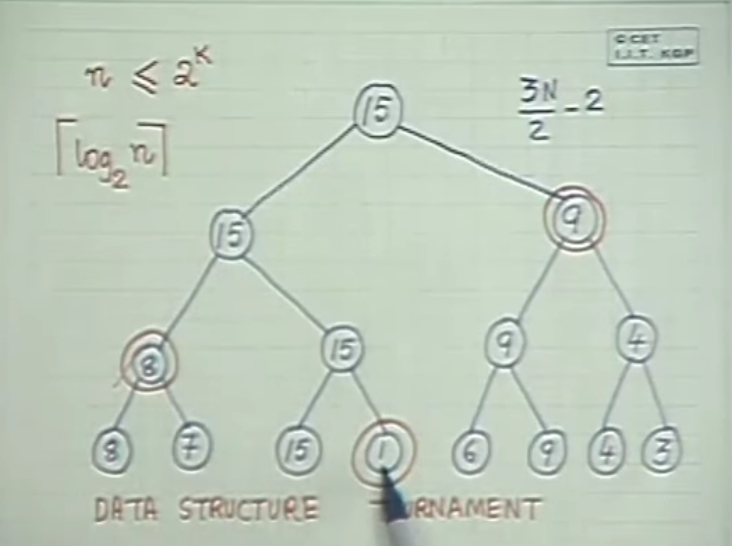 © CET
I.I.T. KGP
n ≤ 2^K
⌈log₂ n⌉
3N/2 - 2
15
15 9
8 15 9 4
8 7 15 1 6 9 4 3
DATA STRUCTURE TOURNAMENT